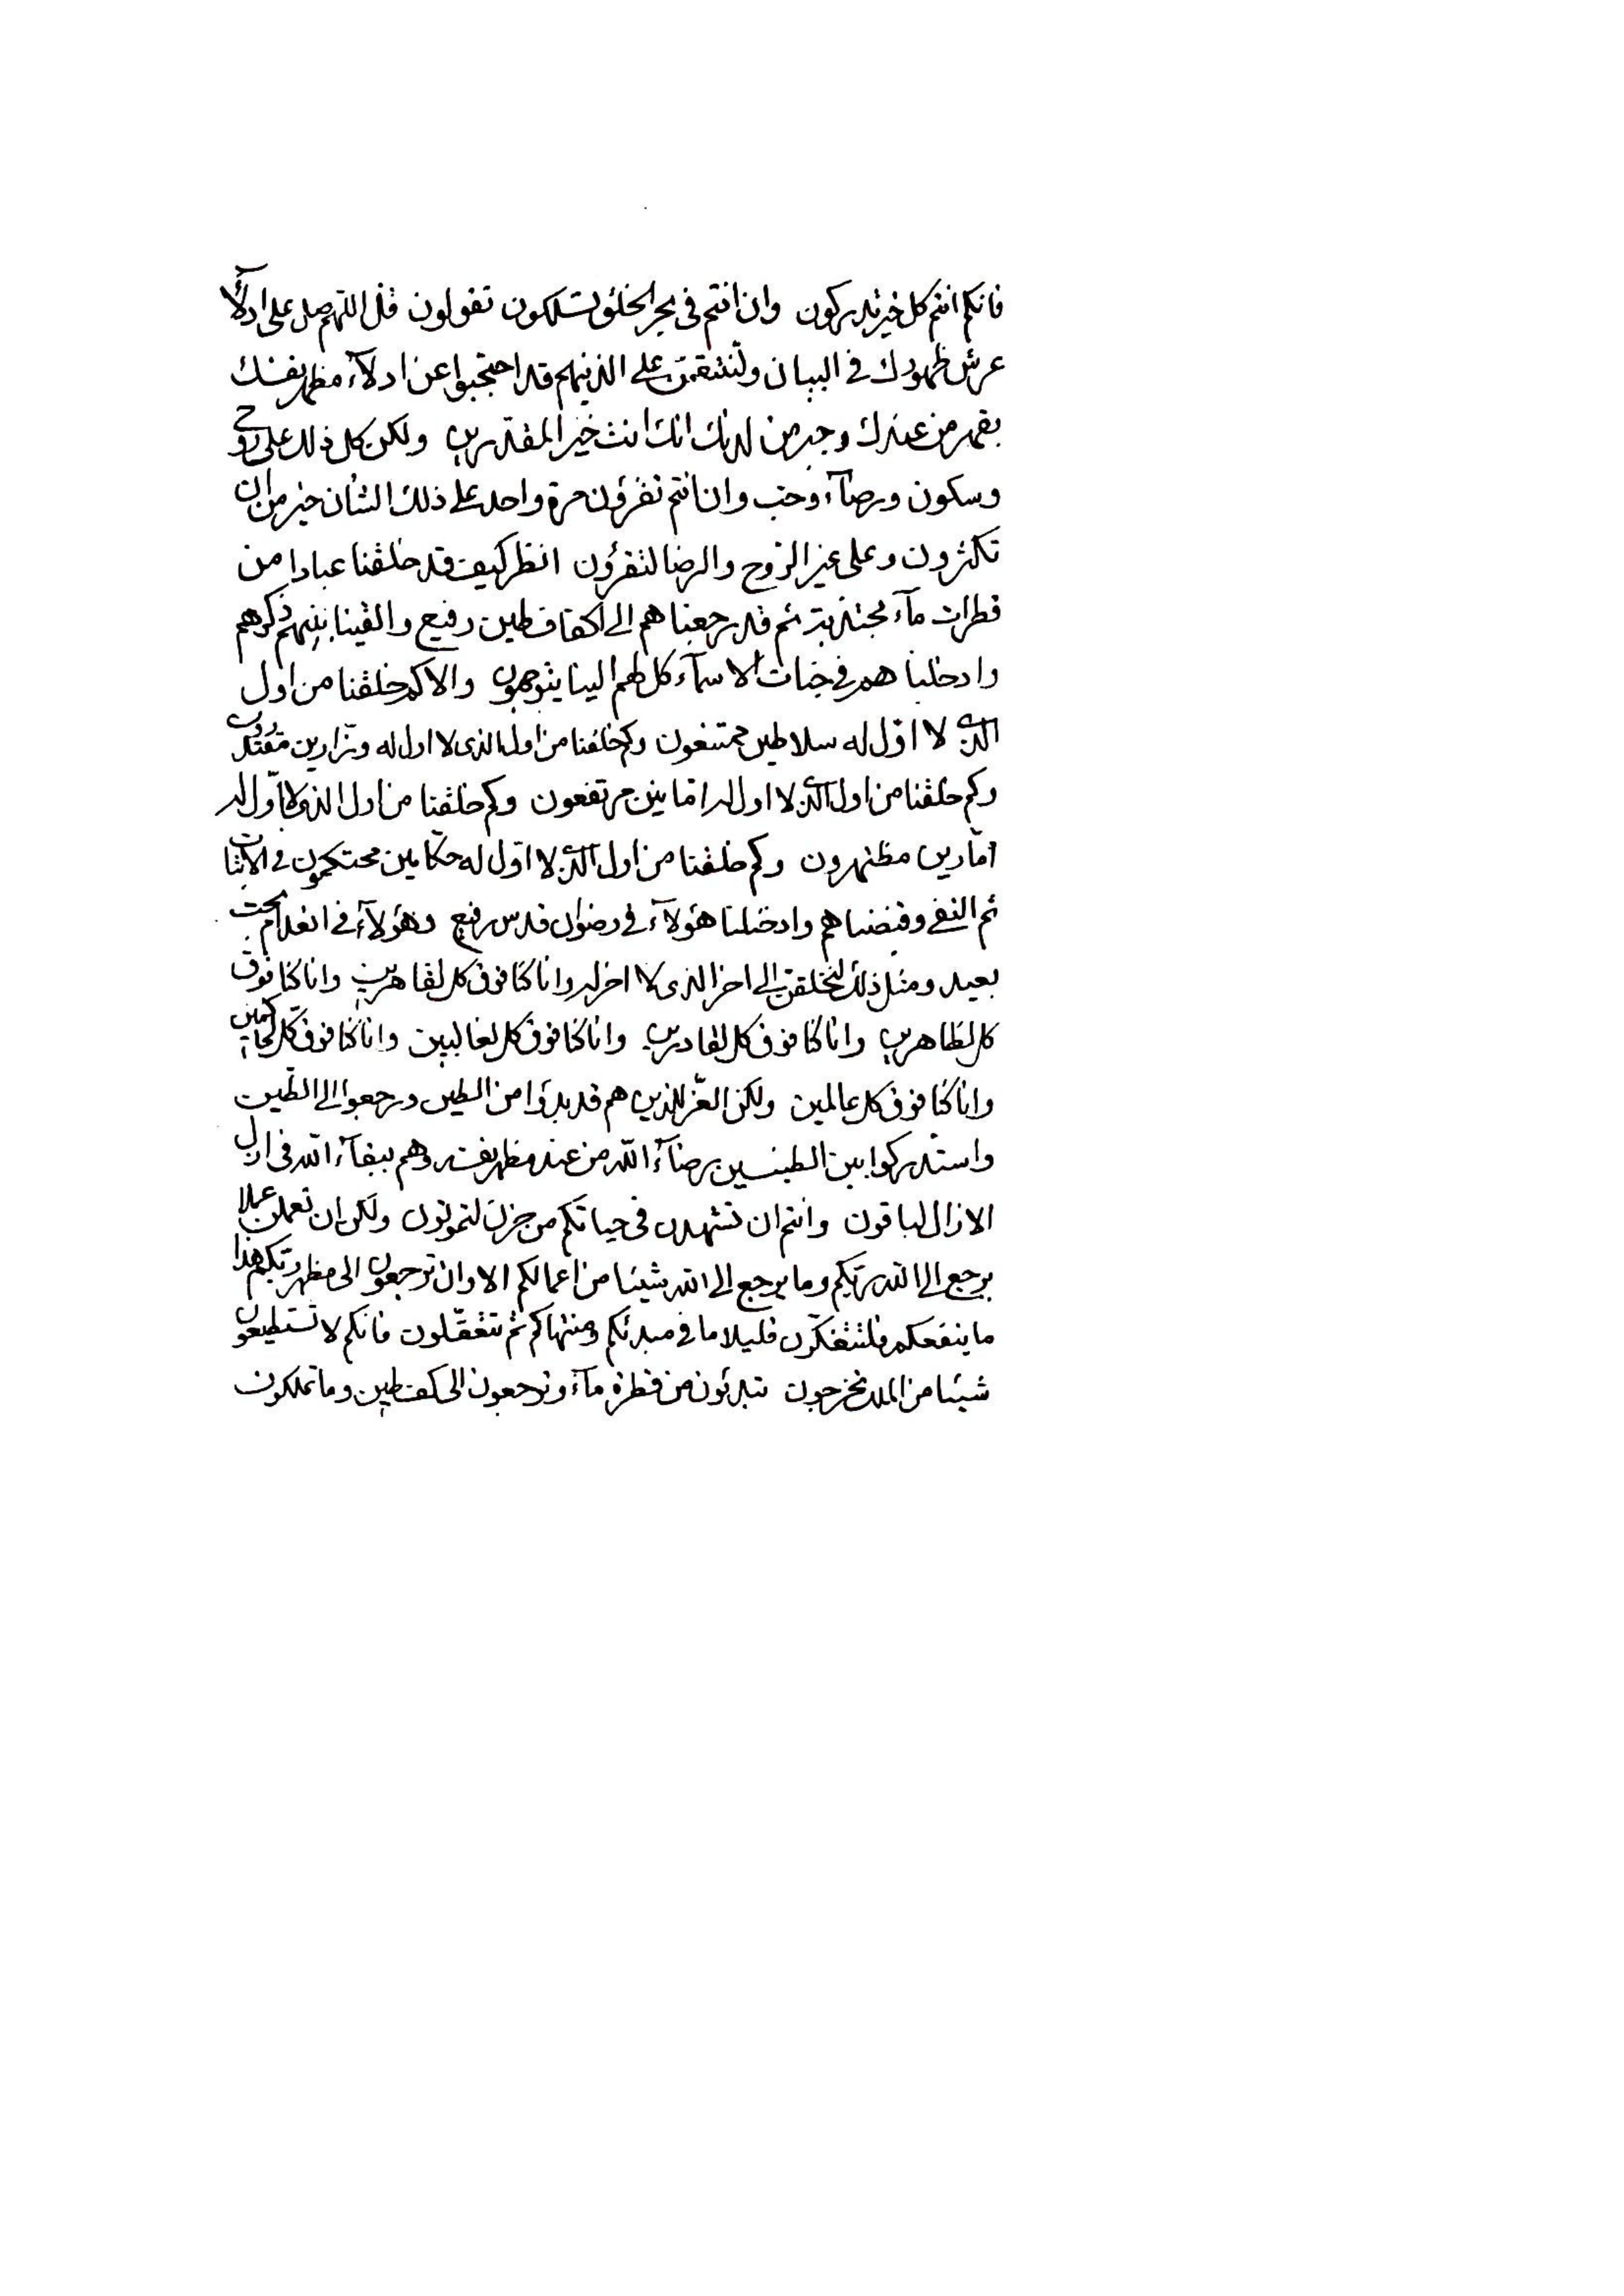 فانكم انتم كل خير تدركون وان انتم فى بحر الخلق لتسلكون تقولون قل اللهم صل على ادلاء
عرش ظهورك فى البيان ولتنتقمن على الذينهم قد احتجبوا عن ادلاء مظهر نفسك
بقهر من عندك وجبر من لدنك انك انت خير المقتدرين ولكن كل ذلك على روح
وسكون ورضاء وحب وان انتم تقرؤن مرة واحد على ذلك الشأن خير من ان
تكثرون وعلى غير الروح والرضا لتقرؤن انظر كيف قد خلقنا عبادا من
قطرات مآء ثم قد رجعناهم الى اكفاف طين رفيع والقينا بينهم ذكرهم
وادخلناهم فى جنات الاسمآء كل لهم الينا يتوجهون والا كم خلقنا من اول
الذى لا اول له سلاطين ممتنعون وكم خلقنا من اول الذى لا اول له وزارين مقتدرون
وكم خلقنا من اول الذى لا اول له مرتفعون وكم خلقنا من اول الذى لا اول له
امارين مظتهرون وكم خلقنا من اول الذى لا اول له حكامين محتكمون فى الاثبات
ثم النفى وقبضناهم وادخلنا هؤلاء فى رضوان قدس رفيع وهؤلاء فى انعدام بحت
بعيد ومثل ذلك لنخلقن الى اخر الذى لا اخر له وانا كنا فوق كل لقاهرين وانا كنا فوق
كل لظاهرين وانا كنا فوق كل لقادرين وانا كنا فوق كل لغالبين وانا كنا فوق كل لحاكمين
وانا كنا فوق كل عالمين ولكن العز للذين هم قد بدؤا من الطين ورجعوا الى الطين
واستدركوا بين الطينين برضآء الله من عند مظهر نفسه وهم ببقآء الله فى ازل
الازال لباقون وانتم ان تشهدون فى حياتكم من حزن لتموتون ولكن ان تعملن عملا
يرجع الى الله ربكم وما يرجع الى الله شيئا من اعمالكم الا وان ترجعون الى مظهر ربكم هذا
ما ينفعكم فلتتفكرون قليلا ما فى مبدئكم ومنتهاكم ثم تتعقلون فانكم لا تستطيعون
شيئا من الملك تخرجون تبدئون من قطرة مآء وترجعون الى كف طين وما تملكون